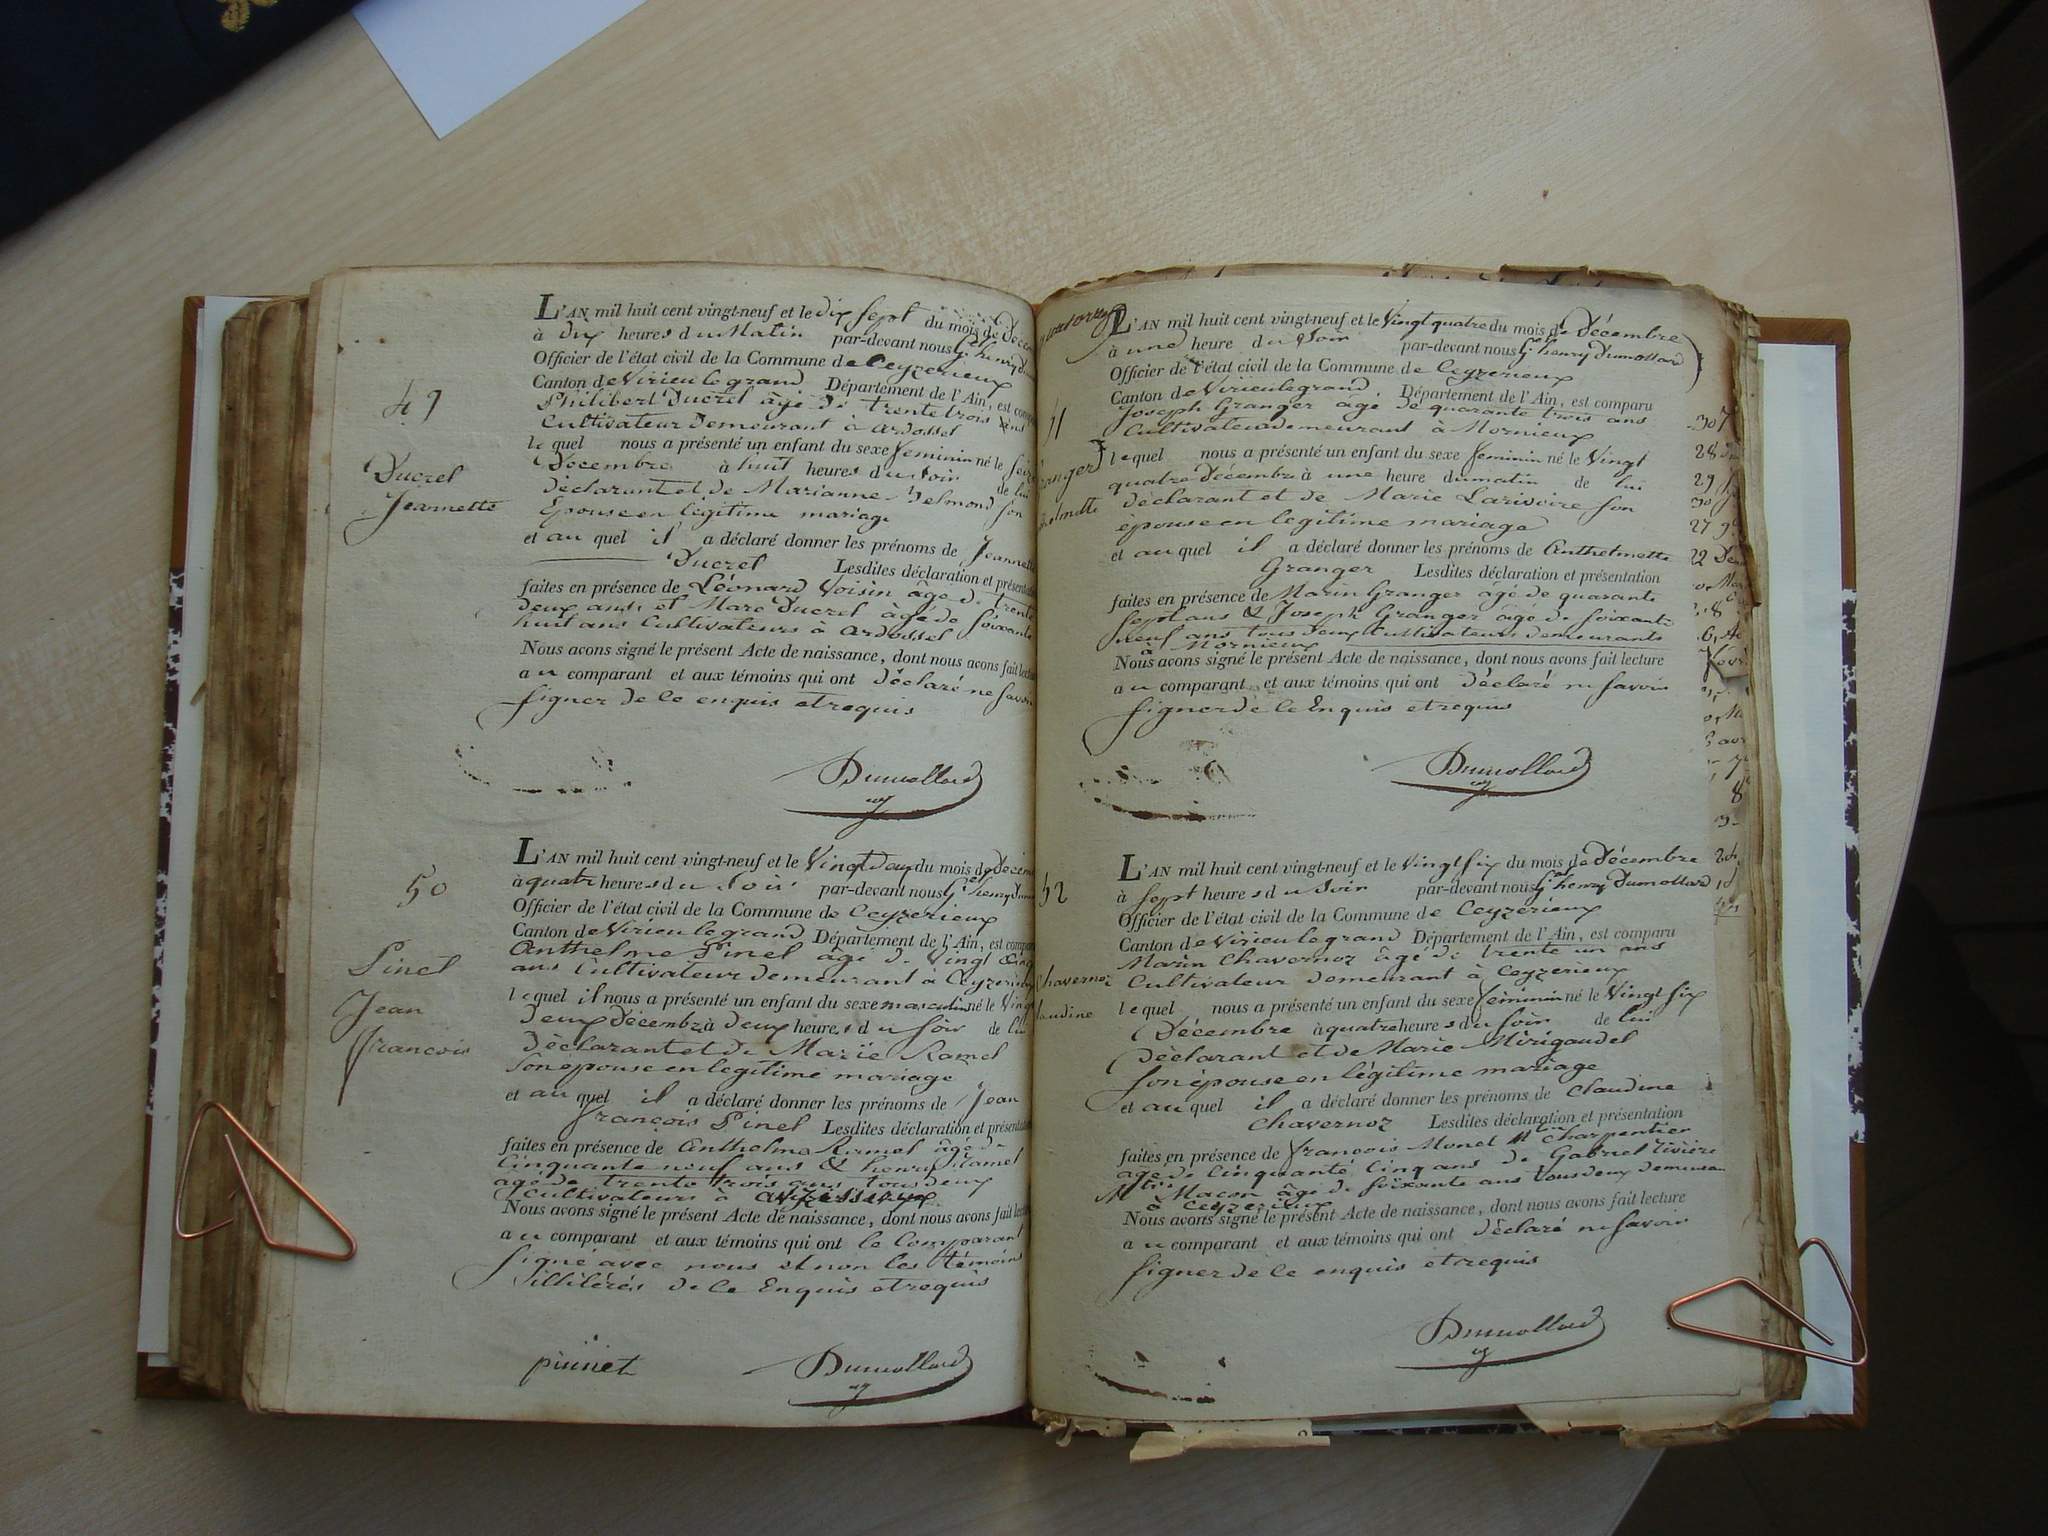 49
Ducrel
Jeannette
L'AN mil huit cent vingt-neuf et le dix sept du mois de
à dix heures du Matin par-devant nous henry
Officier de l'état civil de la Commune de Ceyzerieux
Canton de Virieu le grand Département de l'Ain, est
Philibert Ducrel âgé de trente trois ans
Cultivateur Demeurant à Ardossel
lequel nous a présenté un enfant du sexe feminin né le
Decembre à huit heures du Soir de lui
déclarant et de Marianne Delmond son
Epouse en legitime mariage
et auquel il a déclaré donner les prénoms de Jeannette
Ducrel Lesdites déclaration et
faites en présence de Léonard Voisin âgé de trente
deux ans et Marc Ducrel âgé de soixante
huit ans Cultivateurs à Ardossel
Nous avons signé le présent Acte de naissance, dont nous avons fait
au comparant et aux témoins qui ont déclaré ne savoir
signer de ce enquis et requis
Dumollard
50
Pinel
Jean
francois
L'AN mil huit cent vingt-neuf et le Vingt deux du mois de
à quatre heures du Soir par-devant nous henry
Officier de l'état civil de la Commune de Ceyzerieux
Canton de Virieu le grand Département de l'Ain, est
Anthelme Pinel âgé de Vingt Cinq
ans Cultivateur demeurant à Ceyzerieux
lequel il nous a présenté un enfant du sexe masculin né le Vingt
deux Décembre à deux heures du soir de lui
Déclarant et de Marie Ramel
Son epouse en legitime mariage
et auquel il a déclaré donner les prénoms de Jean
françois Pinel Lesdites déclaration et
faites en présence de Anthelme Ramel âgé de
Cinquante neuf ans & henry Ramel
agé de trente trois ans tous deux
Cultivateurs à
Nous avons signé le présent Acte de naissance, dont nous avons fait
au comparant et aux témoins qui ont le Comparant
signé avec nous et non les témoins
illitérés de ce Enquis et requis
pinnet Dumollard
L'AN mil huit cent vingt-neuf et le Vingt quatre du mois de Décembre
à une heure du Soir par-devant nous henry Dumollard
Officier de l'état civil de la Commune de Ceyzerieux
Canton de Virieu le grand Département de l'Ain, est comparu
Joseph Granger âgé de quarante trois ans
Cultivateur demeurant à Mornieux
lequel nous a présenté un enfant du sexe feminin né le Vingt
quatre Décembre à une heure du matin de lui
déclarant et de Marie Larivoire son
épouse en legitime mariage
et auquel il a déclaré donner les prénoms de Anthelmette
Granger Lesdites déclaration et présentation
faites en présence de Marin Granger âgé de quarante
sept ans & Joseph Granger âgé de soixante
neuf ans tous deux Cultivateurs demeurants
à Mornieux
Nous avons signé le présent Acte de naissance, dont nous avons fait lecture
au comparant et aux témoins qui ont déclaré ne savoir
signer de ce Enquis et requis
Dumollard
52
Chavernoz
L'AN mil huit cent vingt-neuf et le Vingt six du mois de Décembre
à sept heures du Soir par-devant nous henry Dumollard
Officier de l'état civil de la Commune de Ceyzerieux
Canton de Virieu le grand Département de l'Ain, est comparu
Marin Chavernoz âgé de trente un ans
Cultivateur demeurant à Ceyzerieux
lequel nous a présenté un enfant du sexe féminin né le Vingt six
Décembre à quatre heures du soir de lui
Déclarant et de Marie Mirigaudel
son épouse en légitime mariage
et auquel il a déclaré donner les prénoms de Claudine
Chavernoz Lesdites déclaration et présentation
faites en présence de françois Monet Charpentier
agé de Cinquante Cinq ans de Gabriel
Macon âgé de soixante ans tous deux
à Ceyzerieux
Nous avons signé le présent Acte de naissance, dont nous avons fait lecture
au comparant et aux témoins qui ont déclaré ne savoir
signer de ce enquis et requis
Dumollard